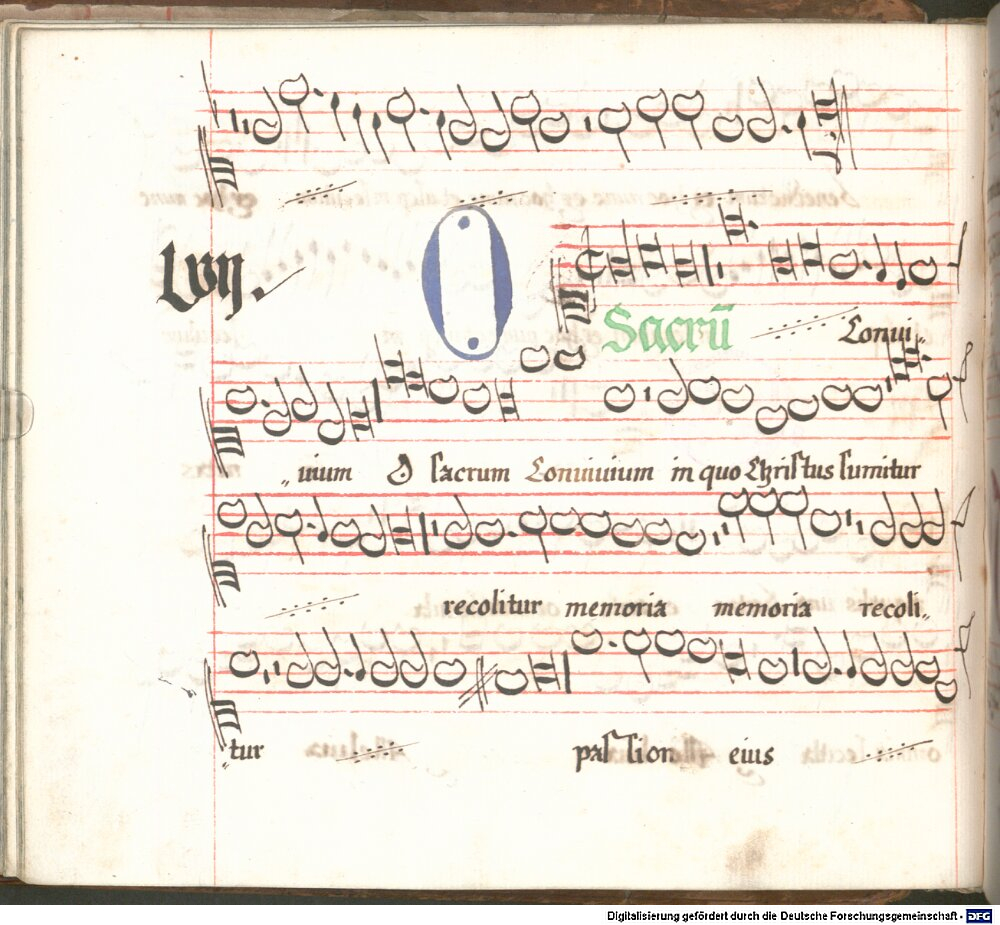 Lvij.
O
Sacrū
Conui„
„uium O sacrum Conuiuium in quo Christus sumitur
recolitur memoria memoria recoli„
„tur passion eius
Digitalisierung gefördert durch die Deutsche Forschungsgemeinschaft - DFG